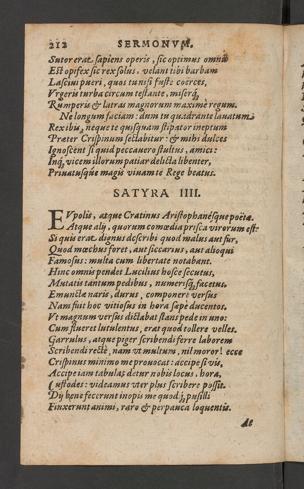 212 SERMONVM.
Sutor erat sapiens operis, sic optimus omniũ
Est opifex sic rex solus. velant tibi barbam
Lasciui pueri, quos tu nisi fuste coërces,
Vrgeris turba circum te stante. miserq́;
Rumperis & latras magnorum maxime regum.
Ne longum faciam: dum tu quadrante lauatum
Rex ibis, neque te quisquam stipator ineptum
Præter Crispinum sectabitur: & mihi dulces
Ignoscent si quid peccauero stultus, amici:
Inq́; vicem illorum patiar delicta libenter,
Priuatusq́ue magis viuam te Rege beatus.
SATYRA IIII.
EVpolis, atque Cratinus Aristophanésque poëtæ.
Atque alij, quorum comœdia prisca virorum est:
Si quis erat dignus describi quod malus aut fur,
Quod mœchus foret, aut siccarius, aut alioqui
Famosus: multa cum libertate notabant.
Hinc omnis pendet Lucilius hosce secutus,
Mutatis tantum pedibus, numerisq́; facetus.
Emunctæ naris, durus, componere versus
Nam fuit hoc vitiosus in hora sæpe ducentos.
Vt magnum versus dictabat stans pede in uno:
Cum flueret lutulentus, erat quod tollere velles.
Garrulus, atque piger scribendi ferre laborem
Scribendi rectè, nam vt multum, nil moror! ecce
Crispinus minimo me prouocat: accipe si vis,
Accipe iam tabulas detur nobis locus, hora,
Custodes: videamus vter plus scribere possit.
Dij bene fecerunt inopis me quod q́; pusilli
Finxerunt animi, raro & perpauca loquentis.
At